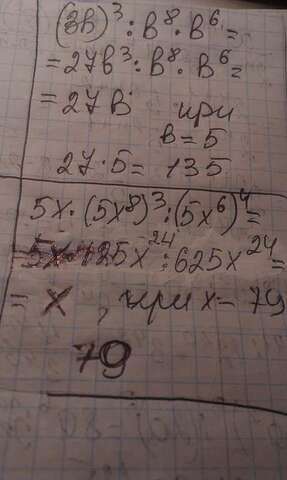 (3b)³ : b⁸ · b⁶ =
= 27b³ : b⁸ · b⁶ =
= 27b при
b = 5
27 · 5 = 135
5x · (5x⁸)³ : (5x⁶)⁴ =
= 5x · 125x²⁴ : 625x²⁴ =
= x , при x = 79
79